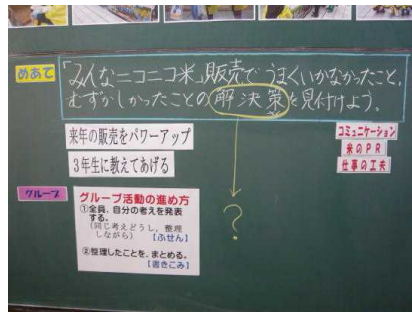 めあて
「みんなニコニコ米」販売でうまくいかなかったこと、
むずかしかったことの解決策を見付けよう。
来年の販売をパワーアップ
3年生に教えてあげる
コミュニケーション
米のPR
仕事の工夫
グループ
グループ活動の進め方
①全員、自分の考えを発表
する。
(同じ考えどうし、整理
しながら) 【ふせん】
②整理したことを、まとめる。
【書きこみ】
?